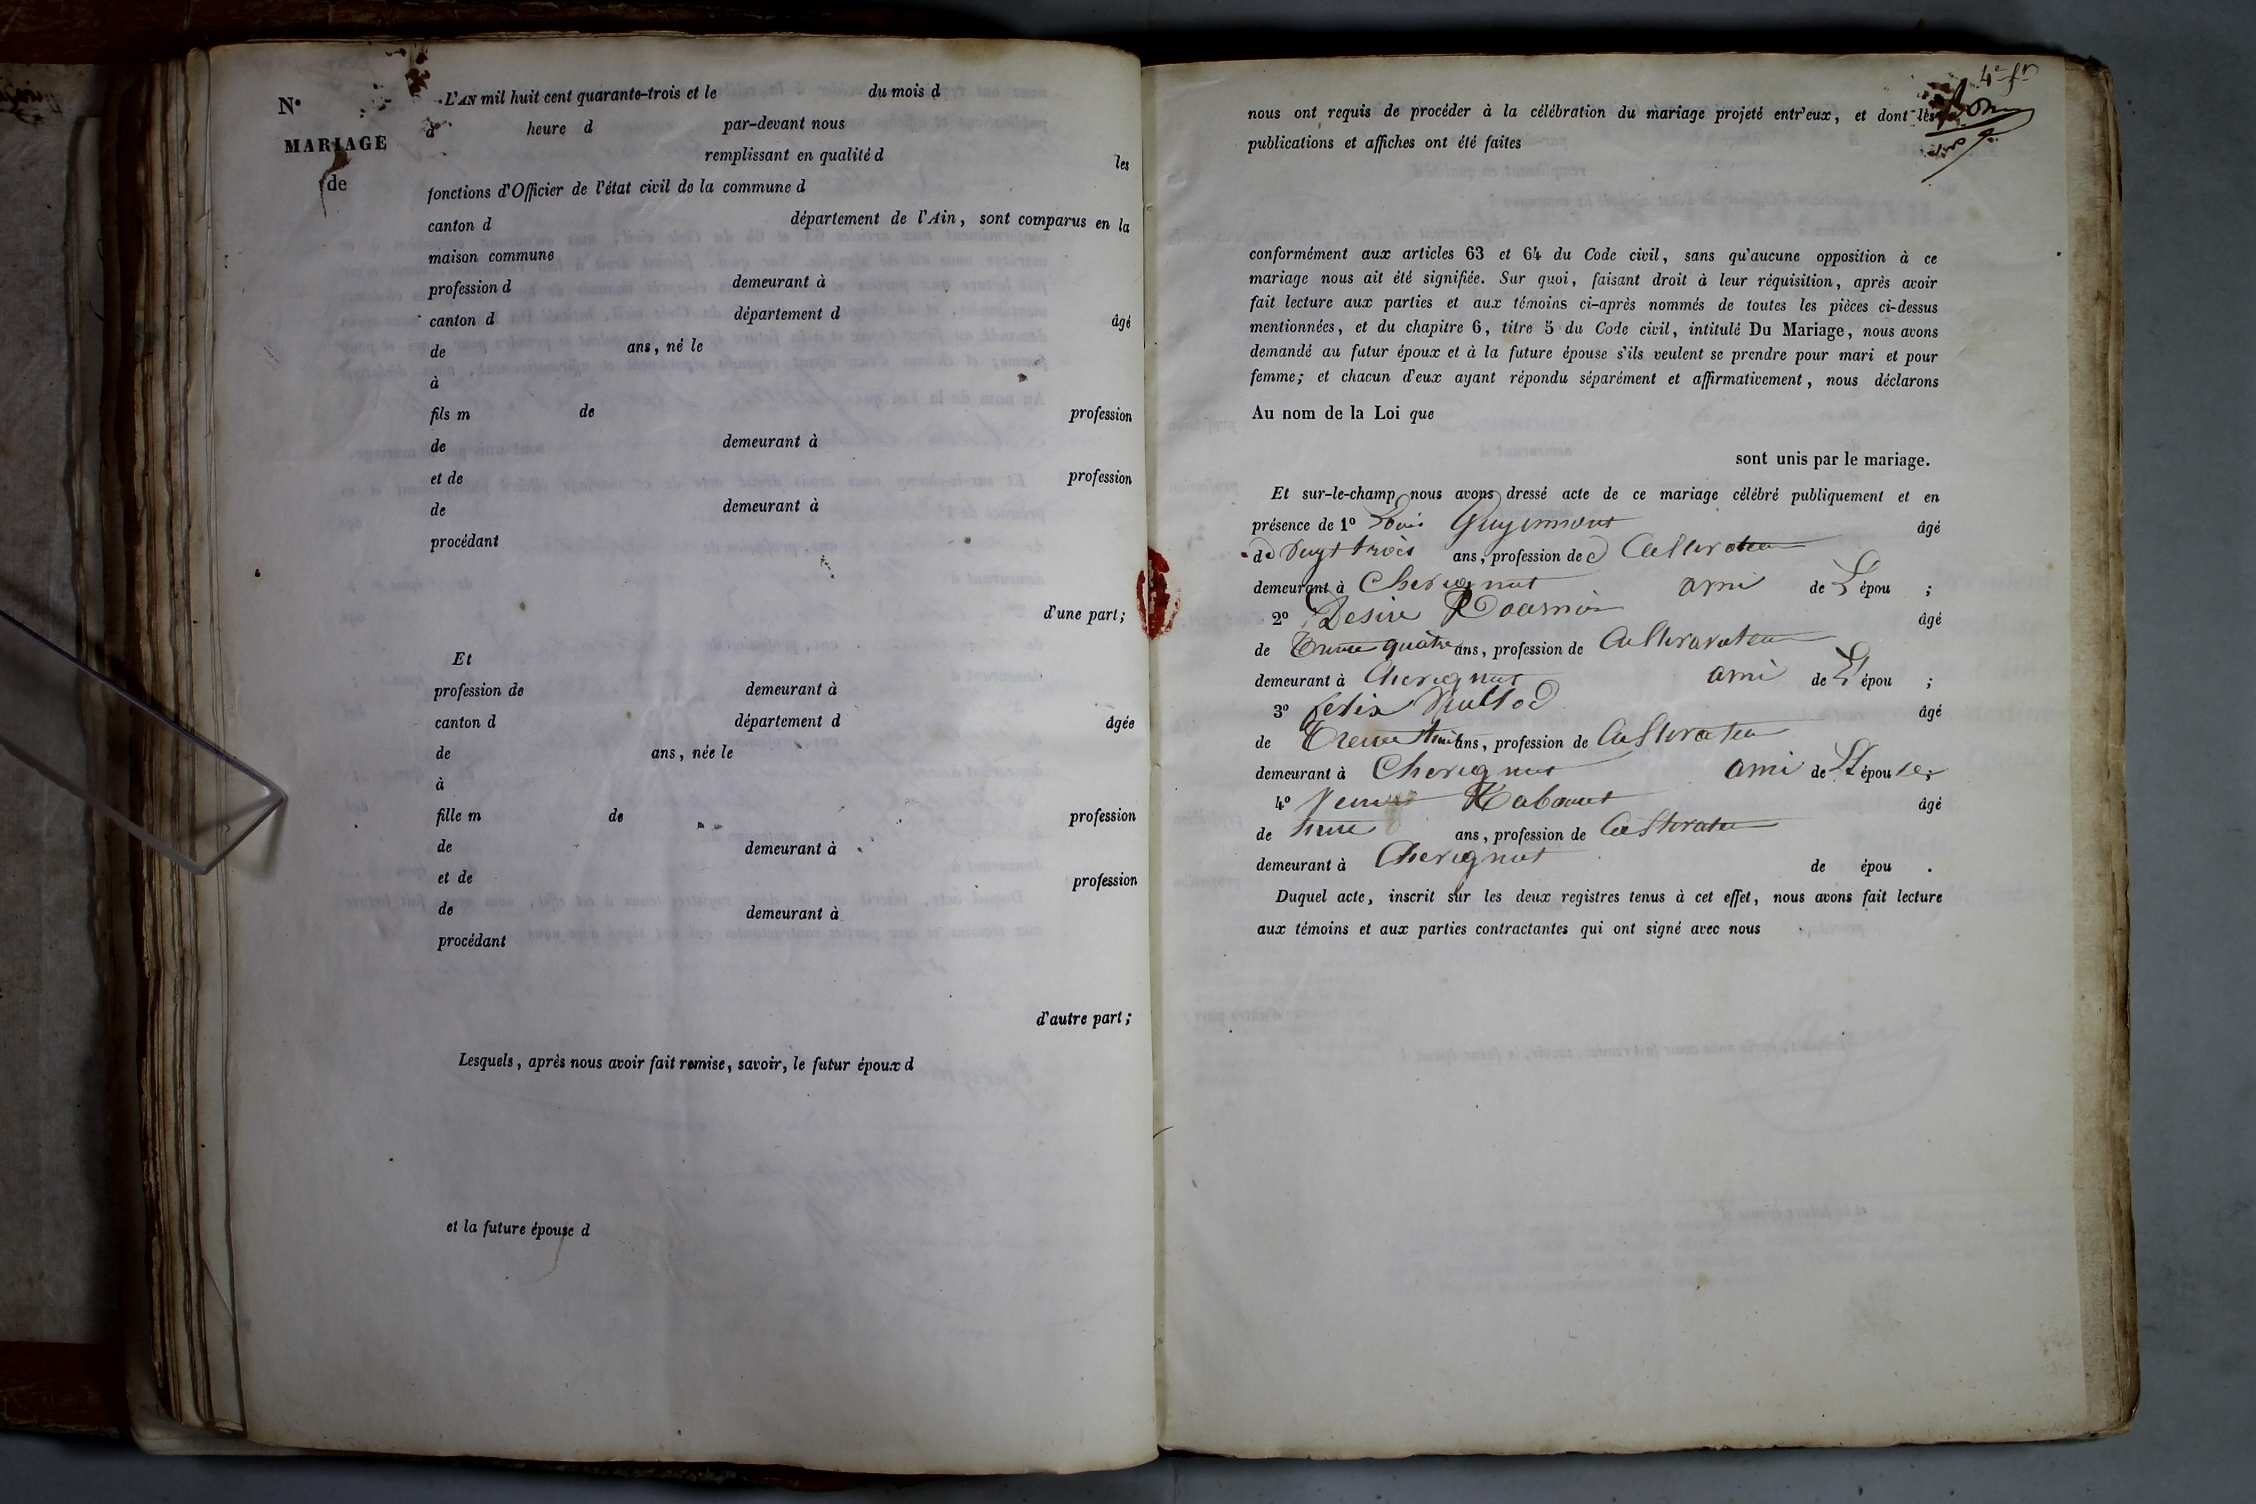 N°
MARIAGE
de
L'AN mil huit cent quarante-trois et le du mois d
à heure d par-devant nous
remplissant en qualité d les
fonctions d'Officier de l'état civil de la commune d
canton d département de l'Ain, sont comparus en la
maison commune
profession d demeurant à
canton d département d âgé
de ans, né le
à
fils m de profession
de demeurant à
et de profession
de demeurant à
procédant
d'une part;
Et
profession de demeurant à
canton d département d âgée
de ans, née le
à
fille m de profession
de demeurant à
et de profession
de demeurant à
procédant
d'autre part;
Lesquels, après nous avoir fait remise, savoir, le futur époux d
et la future épouse d
4e fn
nous ont requis de procéder à la célébration du mariage projeté entr'eux, et dont les
publications et affiches ont été faites
conformément aux articles 63 et 64 du Code civil, sans qu'aucune opposition à ce
mariage nous ait été signifiée. Sur quoi, faisant droit à leur réquisition, après avoir
fait lecture aux parties et aux témoins ci-après nommés de toutes les pièces ci-dessus
mentionnées, et du chapitre 6, titre 5 du Code civil, intitulé Du Mariage, nous avons
demandé au futur époux et à la future épouse s'ils veulent se prendre pour mari et pour
femme; et chacun d'eux ayant répondu séparément et affirmativement, nous déclarons
Au nom de la Loi que
sont unis par le mariage.
Et sur-le-champ nous avons dressé acte de ce mariage célébré publiquement et en
présence de 1° Louis Guyennout âgé
de Vuyt trois ans, profession de
demeurant à Cherignat ami de L épou ;
2° Desire âgé
de quatre ans, profession de
demeurant à Cherignat ami de L épou ;
3° Felix âgé
de ans, profession de
demeurant à Cherignat ami de L épouse;
4° âgé
de ans, profession de
demeurant à Cherignat de épou .
Duquel acte, inscrit sur les deux registres tenus à cet effet, nous avons fait lecture
aux témoins et aux parties contractantes qui ont signé avec nous